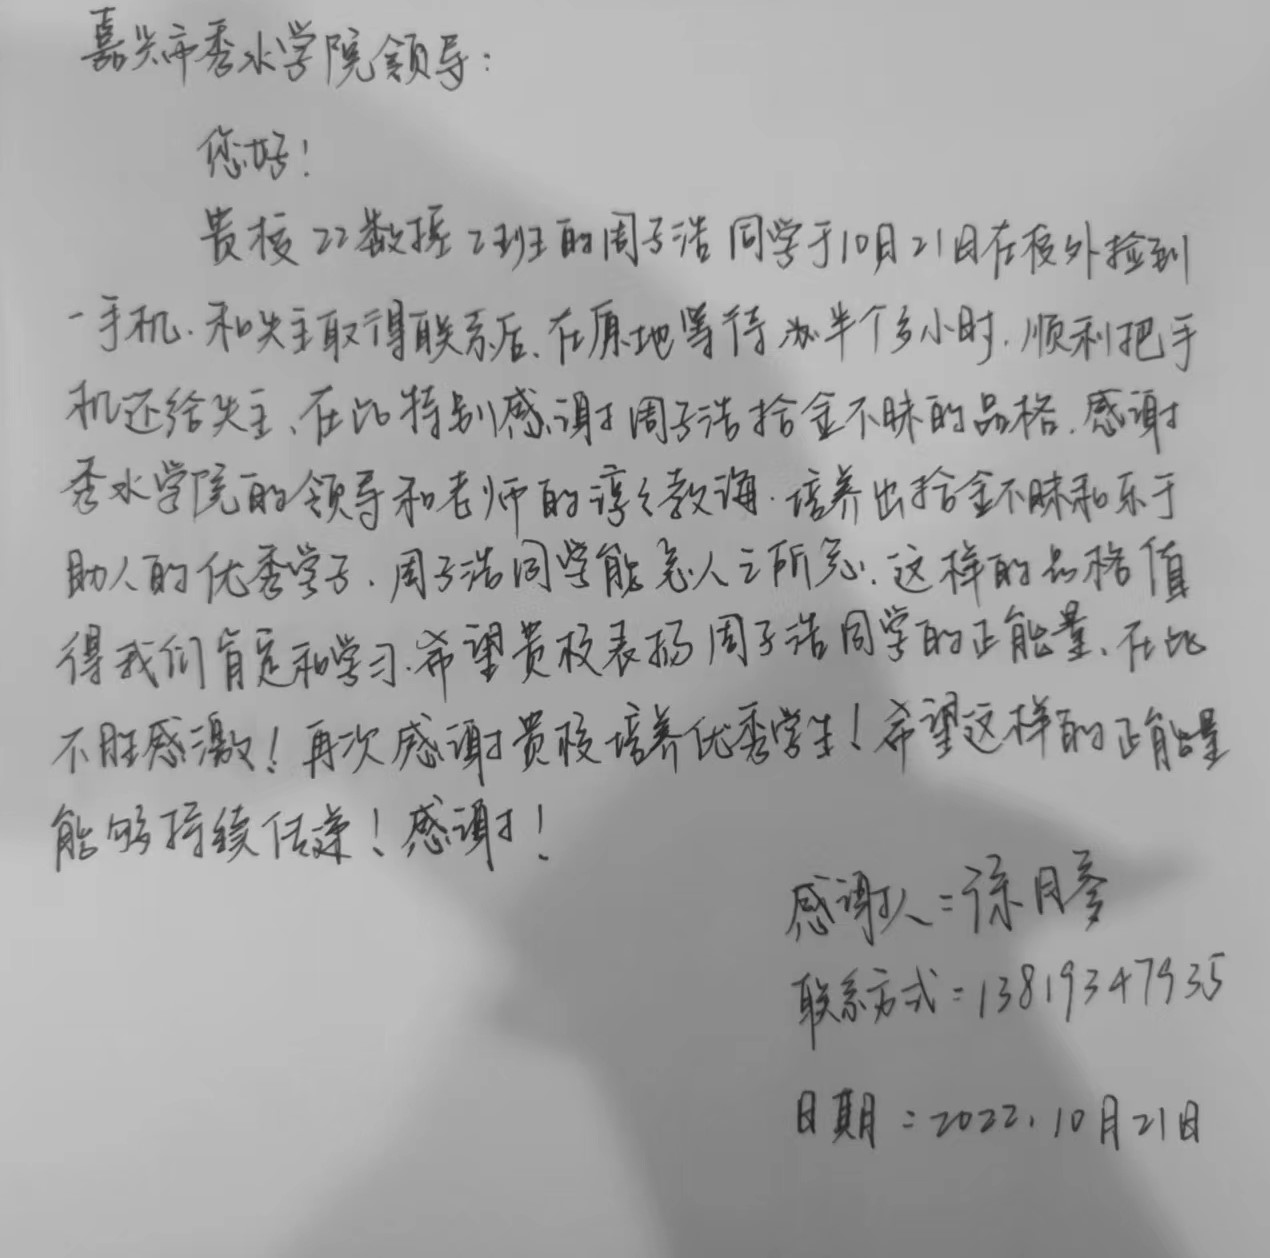 嘉兴市秀水学院领导：
您好！
贵校22数据2班的周子浩同学于10月21日在校外捡到
一手机.和失主取得联系后、在原地等待半个多小时.顺利把手
机还给失主、在此特别感谢周子浩拾金不昧的品格.感谢
秀水学院的领导和老师的谆谆教诲.培养出拾金不昧和乐于
助人的优秀学子.周子浩同学能急人之所急.这样的品格值
得我们肯定和学习.希望贵校表扬周子浩同学的正能量、在此
不胜感激！再次感谢贵校培养优秀学生！希望这样的正能量
能够持续传递！感谢！
感谢人：徐月
联系方式：13819347935
日期：2022.10月21日